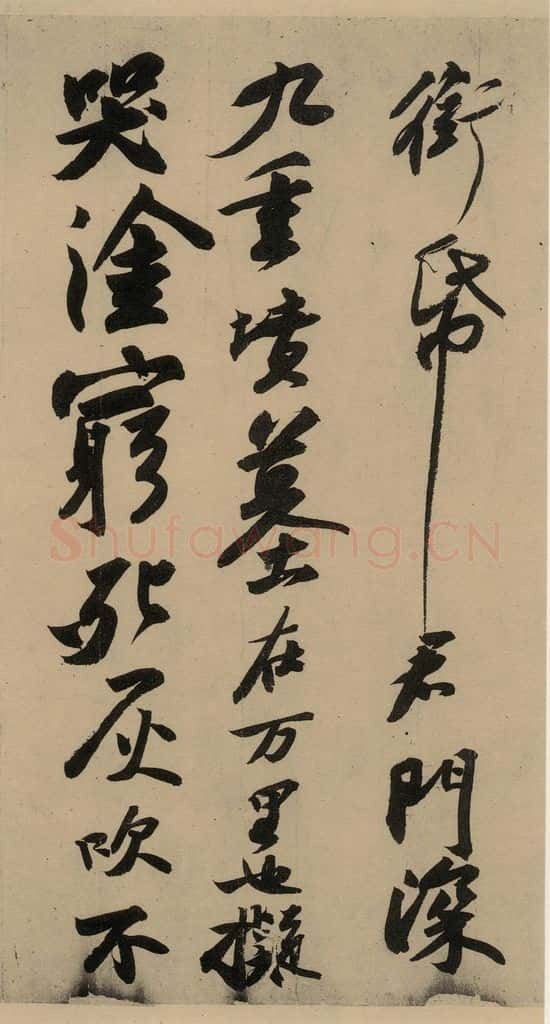 銜帋君門深
九重墳墓在万里也擬
哭塗窮死灰吹不
Shufawang.CN